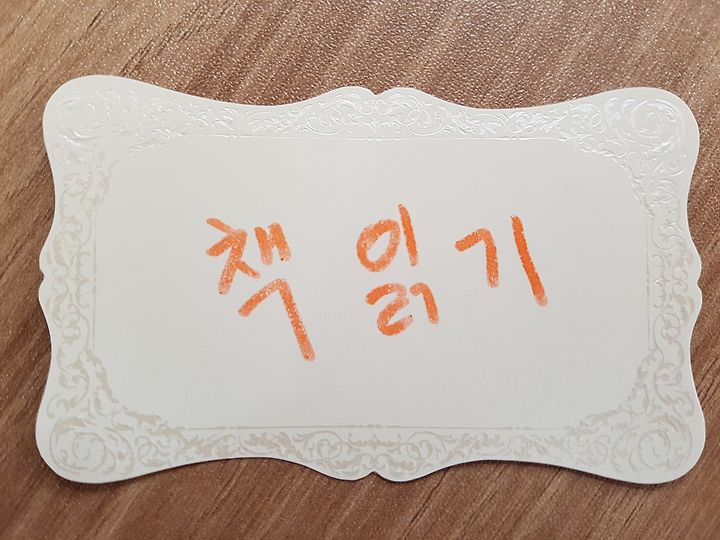 책 읽기